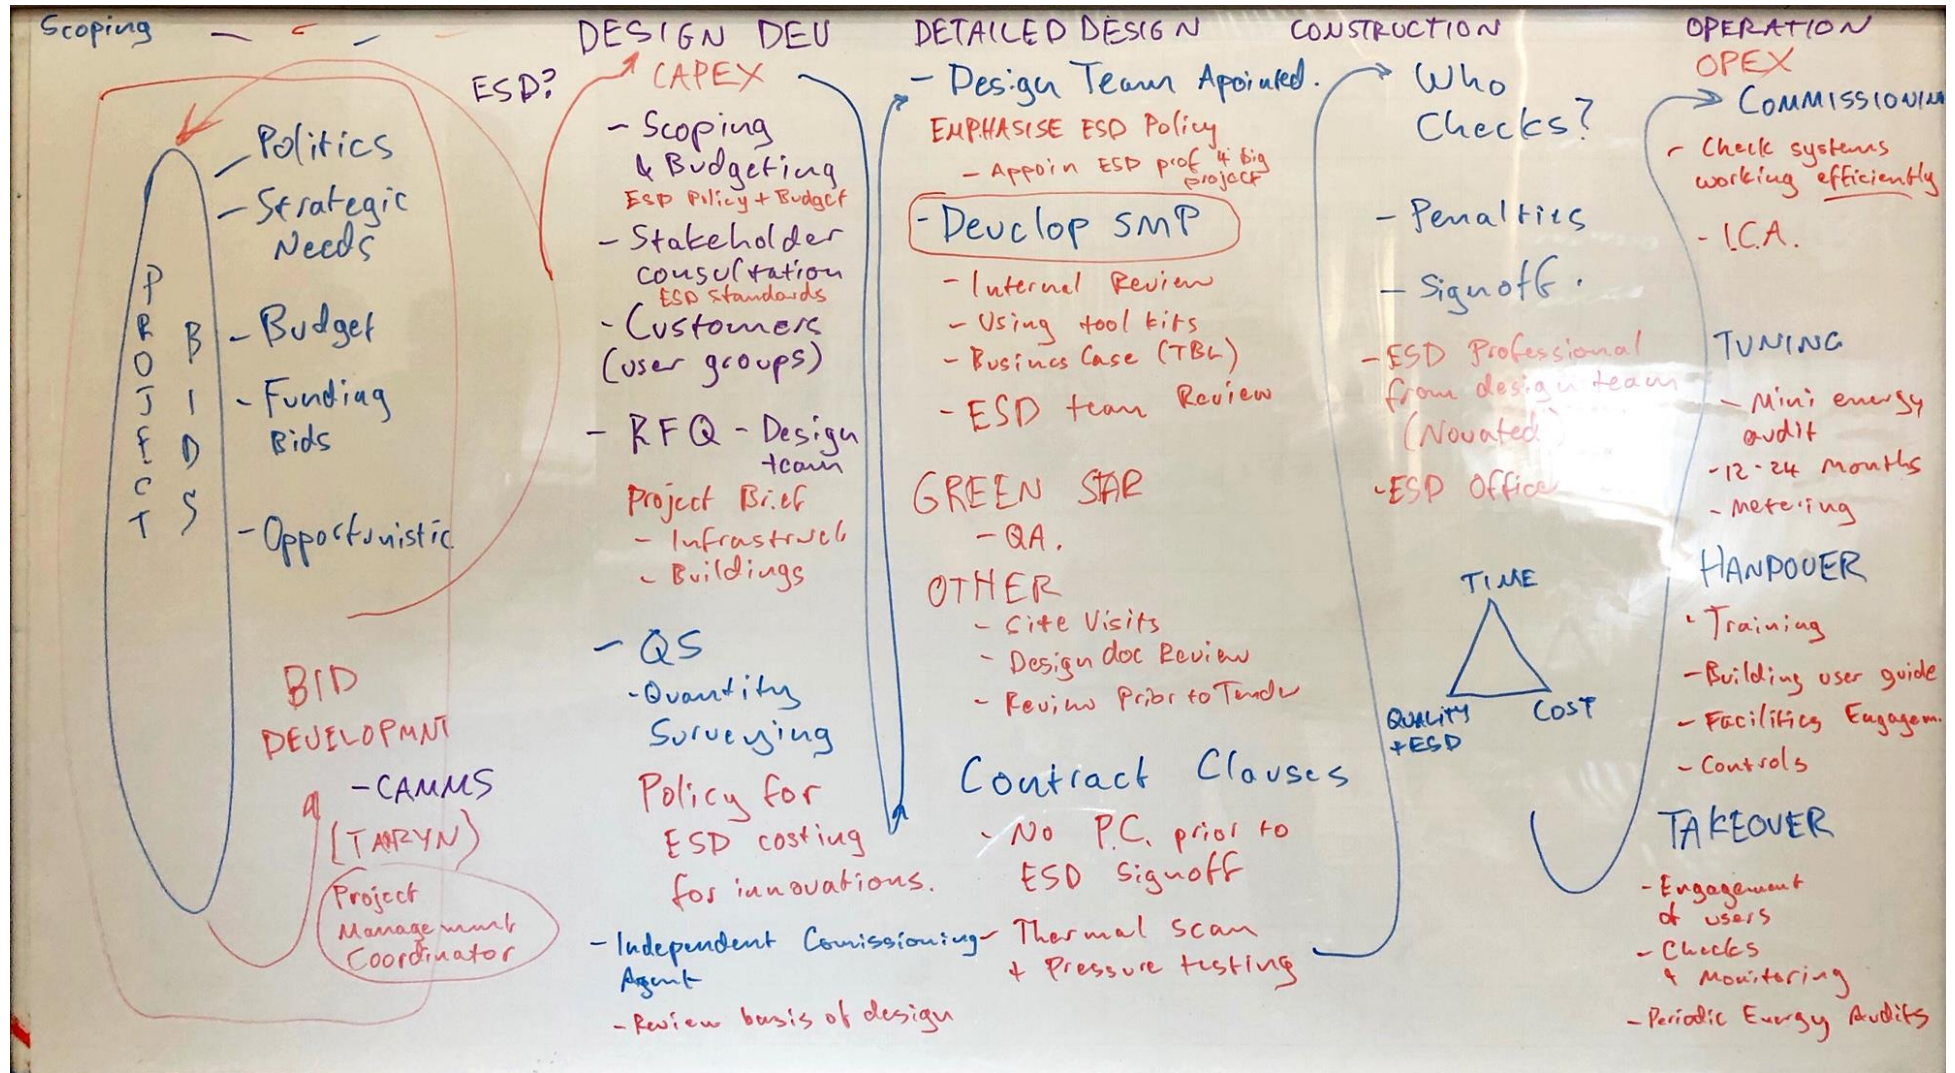 Scoping
PROJECT
BIDS
- Politics
- Strategic
Needs
- Budget
- Funding
Bids
- Opportunistic
BID
DEVELOPMNT
- CAMMS
(TARYN)
Project
Management
Coordinator
ESD?
DESIGN DEV
CAPEX
- Scoping
& Budgeting
ESD Policy + Budget
- Stakeholder
consultation
ESD Standards
- Customers
(user groups)
- RFQ - Design
team
Project Brief
- Infrastruch
- Buildings
- QS
- Quantity
Surveying
Policy for
ESD costing
for innovations.
- Independent Comissioning
Agent
- Review basis of design
DETAILED DESIGN
- Design Team Apointed.
EMPHASISE ESD Policy
- Appoin ESD prof 4 big
project
- Develop SMP
- Internal Review
- Using tool kits
- Busines Case (TBL)
- ESD team Review
GREEN STAR
- QA.
OTHER
- Site Visits
- Design doc Review
- Review Prior to Tender
Contract Clauses
- No P.C. prior to
ESD Signoff
- Thermal scan
+ Pressure testing
CONSTRUCTION
Who
Checks?
- Penalties
- Signoff.
- ESD Professional
from design team
(Novated)
- ESD Office
TIME
QUALITY
+ ESD
COST
OPERATION
OPEX
COMMISSIONIN
- Check systems
working efficiently
- I.C.A.
TUNING
- Mini energy
audit
- 12-24 Months
- Metering
HANDOVER
- Training
- Building user guide
- Facilities Engagem.
- Controls
TAKEOVER
- Engagement
of users
- Checks
& Monitoring
- Periodic Energy Audits